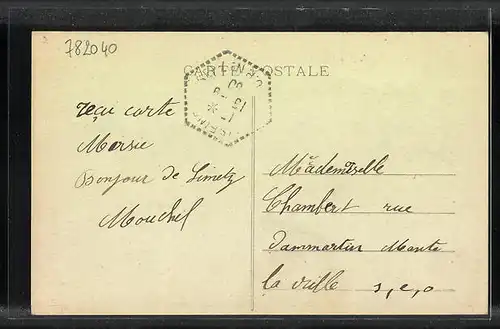 782040
CARTE POSTALE
reçu carte
Mersie
Bonjour de Limetz
Mouchel
Mademoiselle
Chambert rue
Dammartin Mante
la ville s,e,o